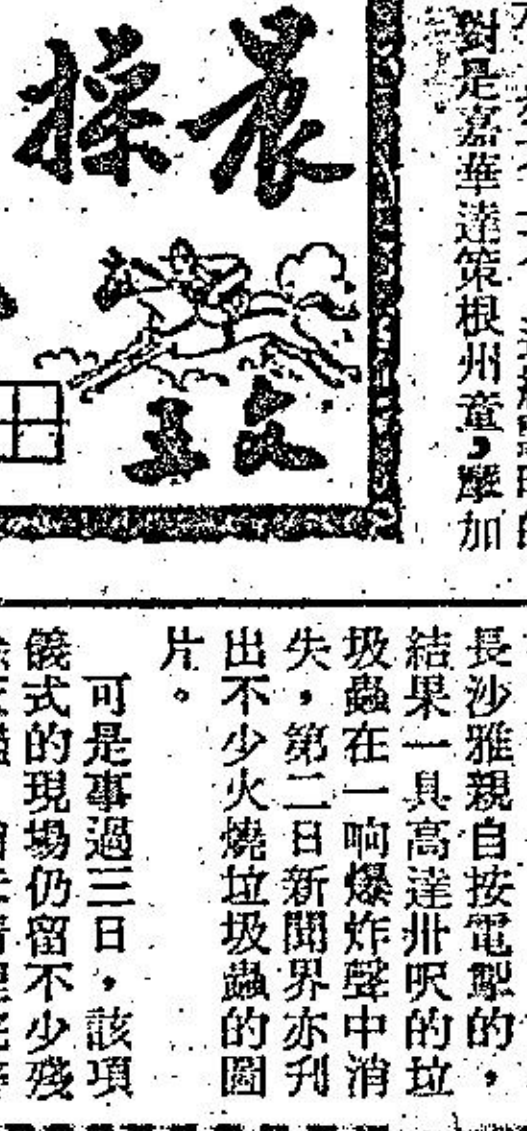 晨採
文王
對是嘉華達策根州童，壓加
長沙雅親自按電掣的，
結果一具高達卅呎的垃
圾蟲在一响爆炸聲中消
失，第二日新聞界亦刋
出不少火燒垃圾蟲的圖
片。
可是事過三日，該項
儀式的現場仍留不少殘